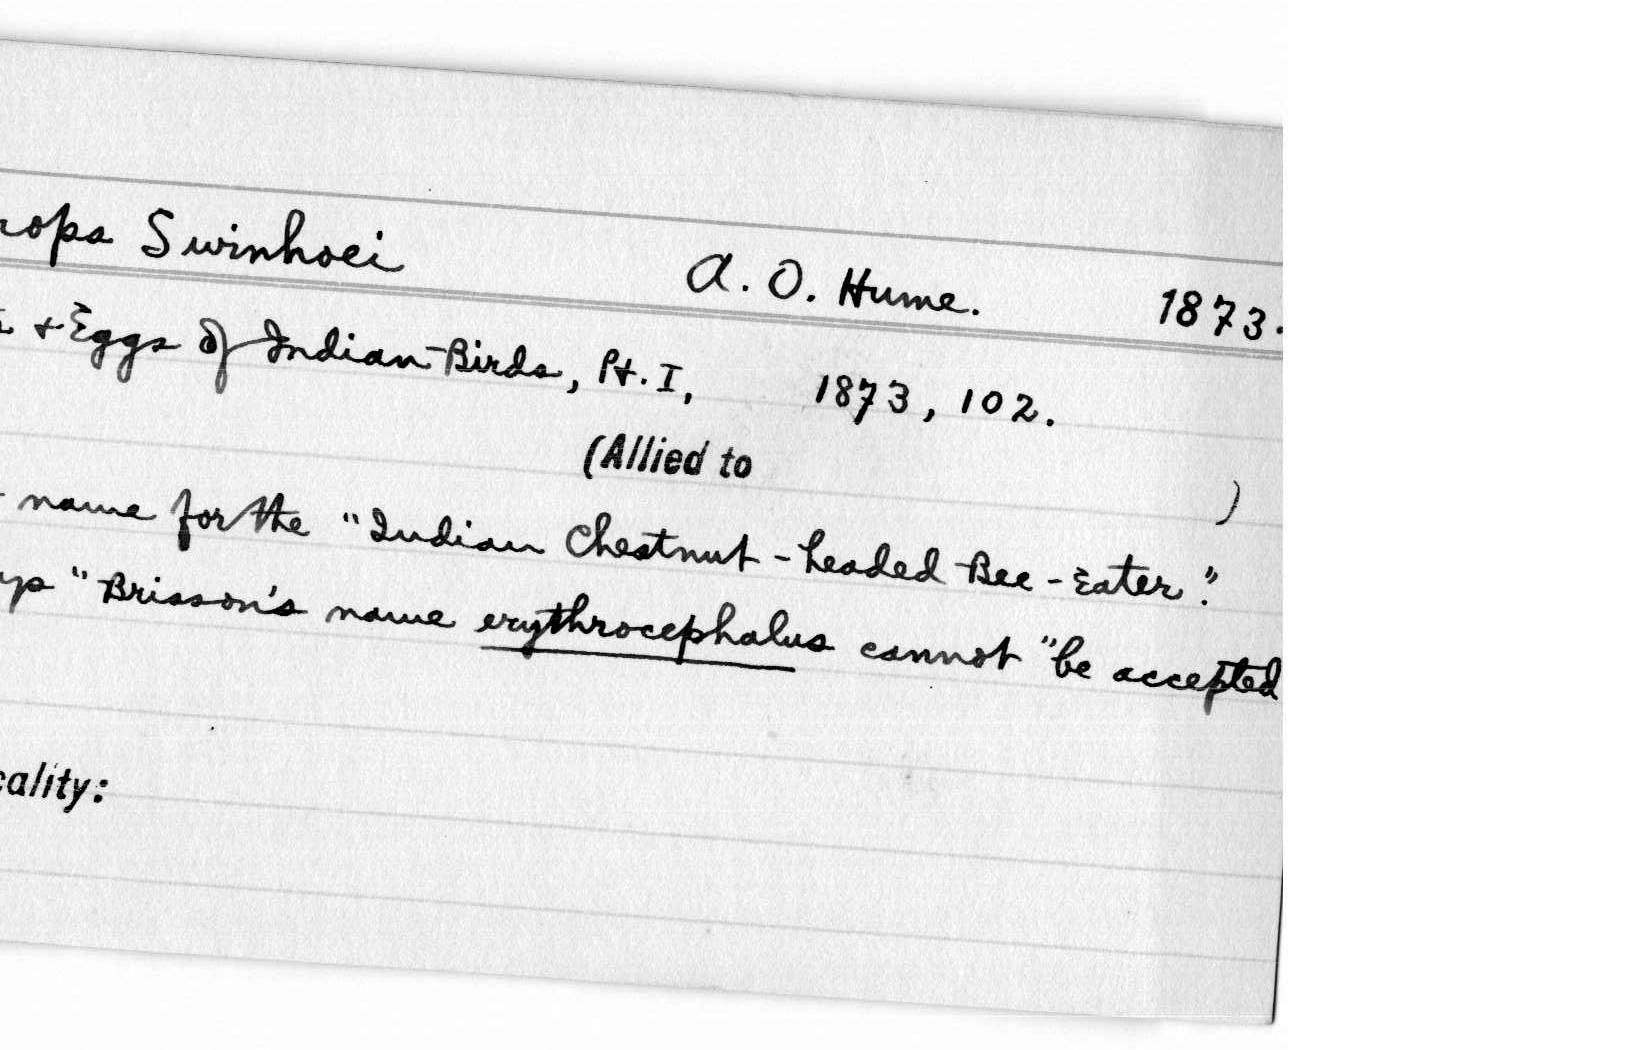 rops Swinhoei A. O. Hume. 1873.
& Eggs of Indian Birds, Pt. I, 1873, 102.
(Allied to )
name for the "Indian Chestnut-headed Bee-Eater."
"Brisson's name erythrocephalus cannot "be accepted
cality: